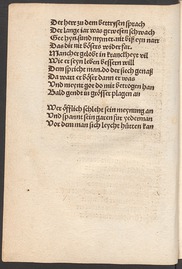 Der herr zu dem bettrysen sprach
Der lange iar was gewesen schwach
Gee hyn sünd nym er nit biß eyn narr
Das dir nit bösers wider far
Mancher gelobt in kranckheyt vil
Wie er syn leben bessern will
Dem spricht man do der siech genaß
Da wart er böser dann er was
Und meynt got do mit betrogen han
Bald gendt in grösser plagen an
Wer öfflich schlecht sein meynung an
Und spannt sein garen für yederman
Vor dem man sich leycht hütten kan